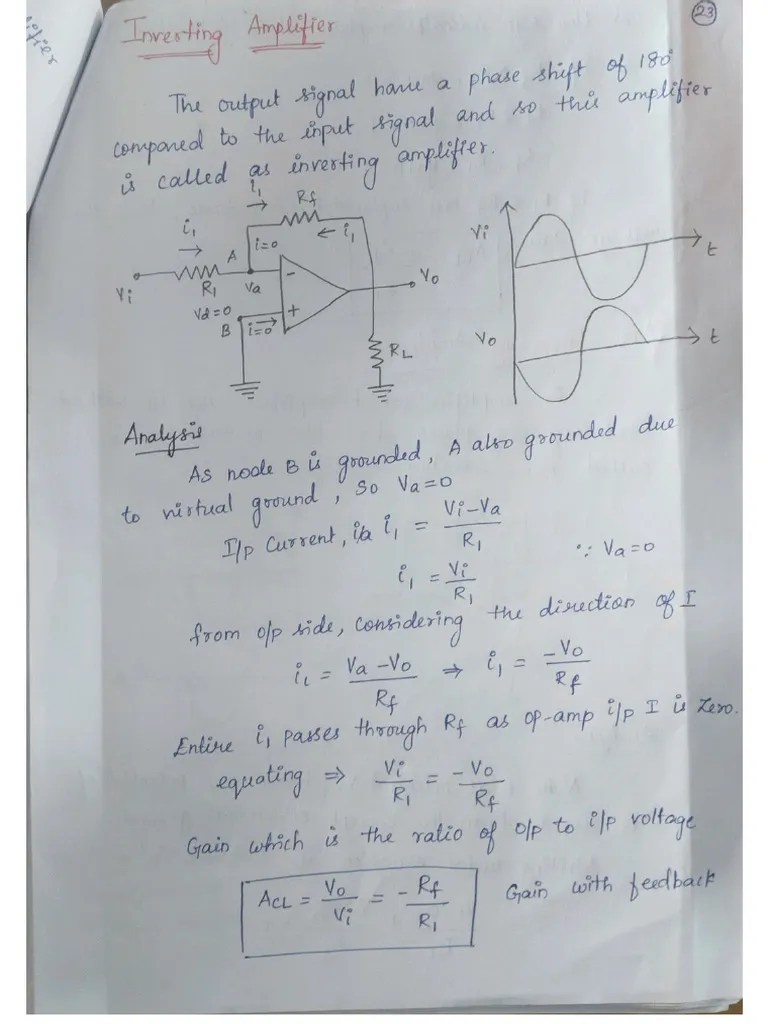 23
Inverting Amplifier
The output signal have a phase shift of 180°
compared to the input signal and so this amplifier
is called as inverting amplifier.
i1
Rf
i1
← i1
i=0
A
Vi
R1
Va
-
Vo
Vd=0
B
i=0
+
RL
Vi
t
Vo
t
Analysis
As node B is grounded, A also grounded due
to virtual ground, so Va=0
I/p Current, i1 = Vi-Va / R1
i1 = Vi / R1 ∵ Va=0
from o/p side, considering the direction of I
i1 = Va-Vo / Rf ⇒ i1 = -Vo / Rf
Entire i1 passes through Rf as op-amp i/p I is Zero.
equating ⇒ Vi / R1 = -Vo / Rf
Gain which is the ratio of o/p to i/p voltage
ACL = Vo / Vi = - Rf / R1 Gain with feedback